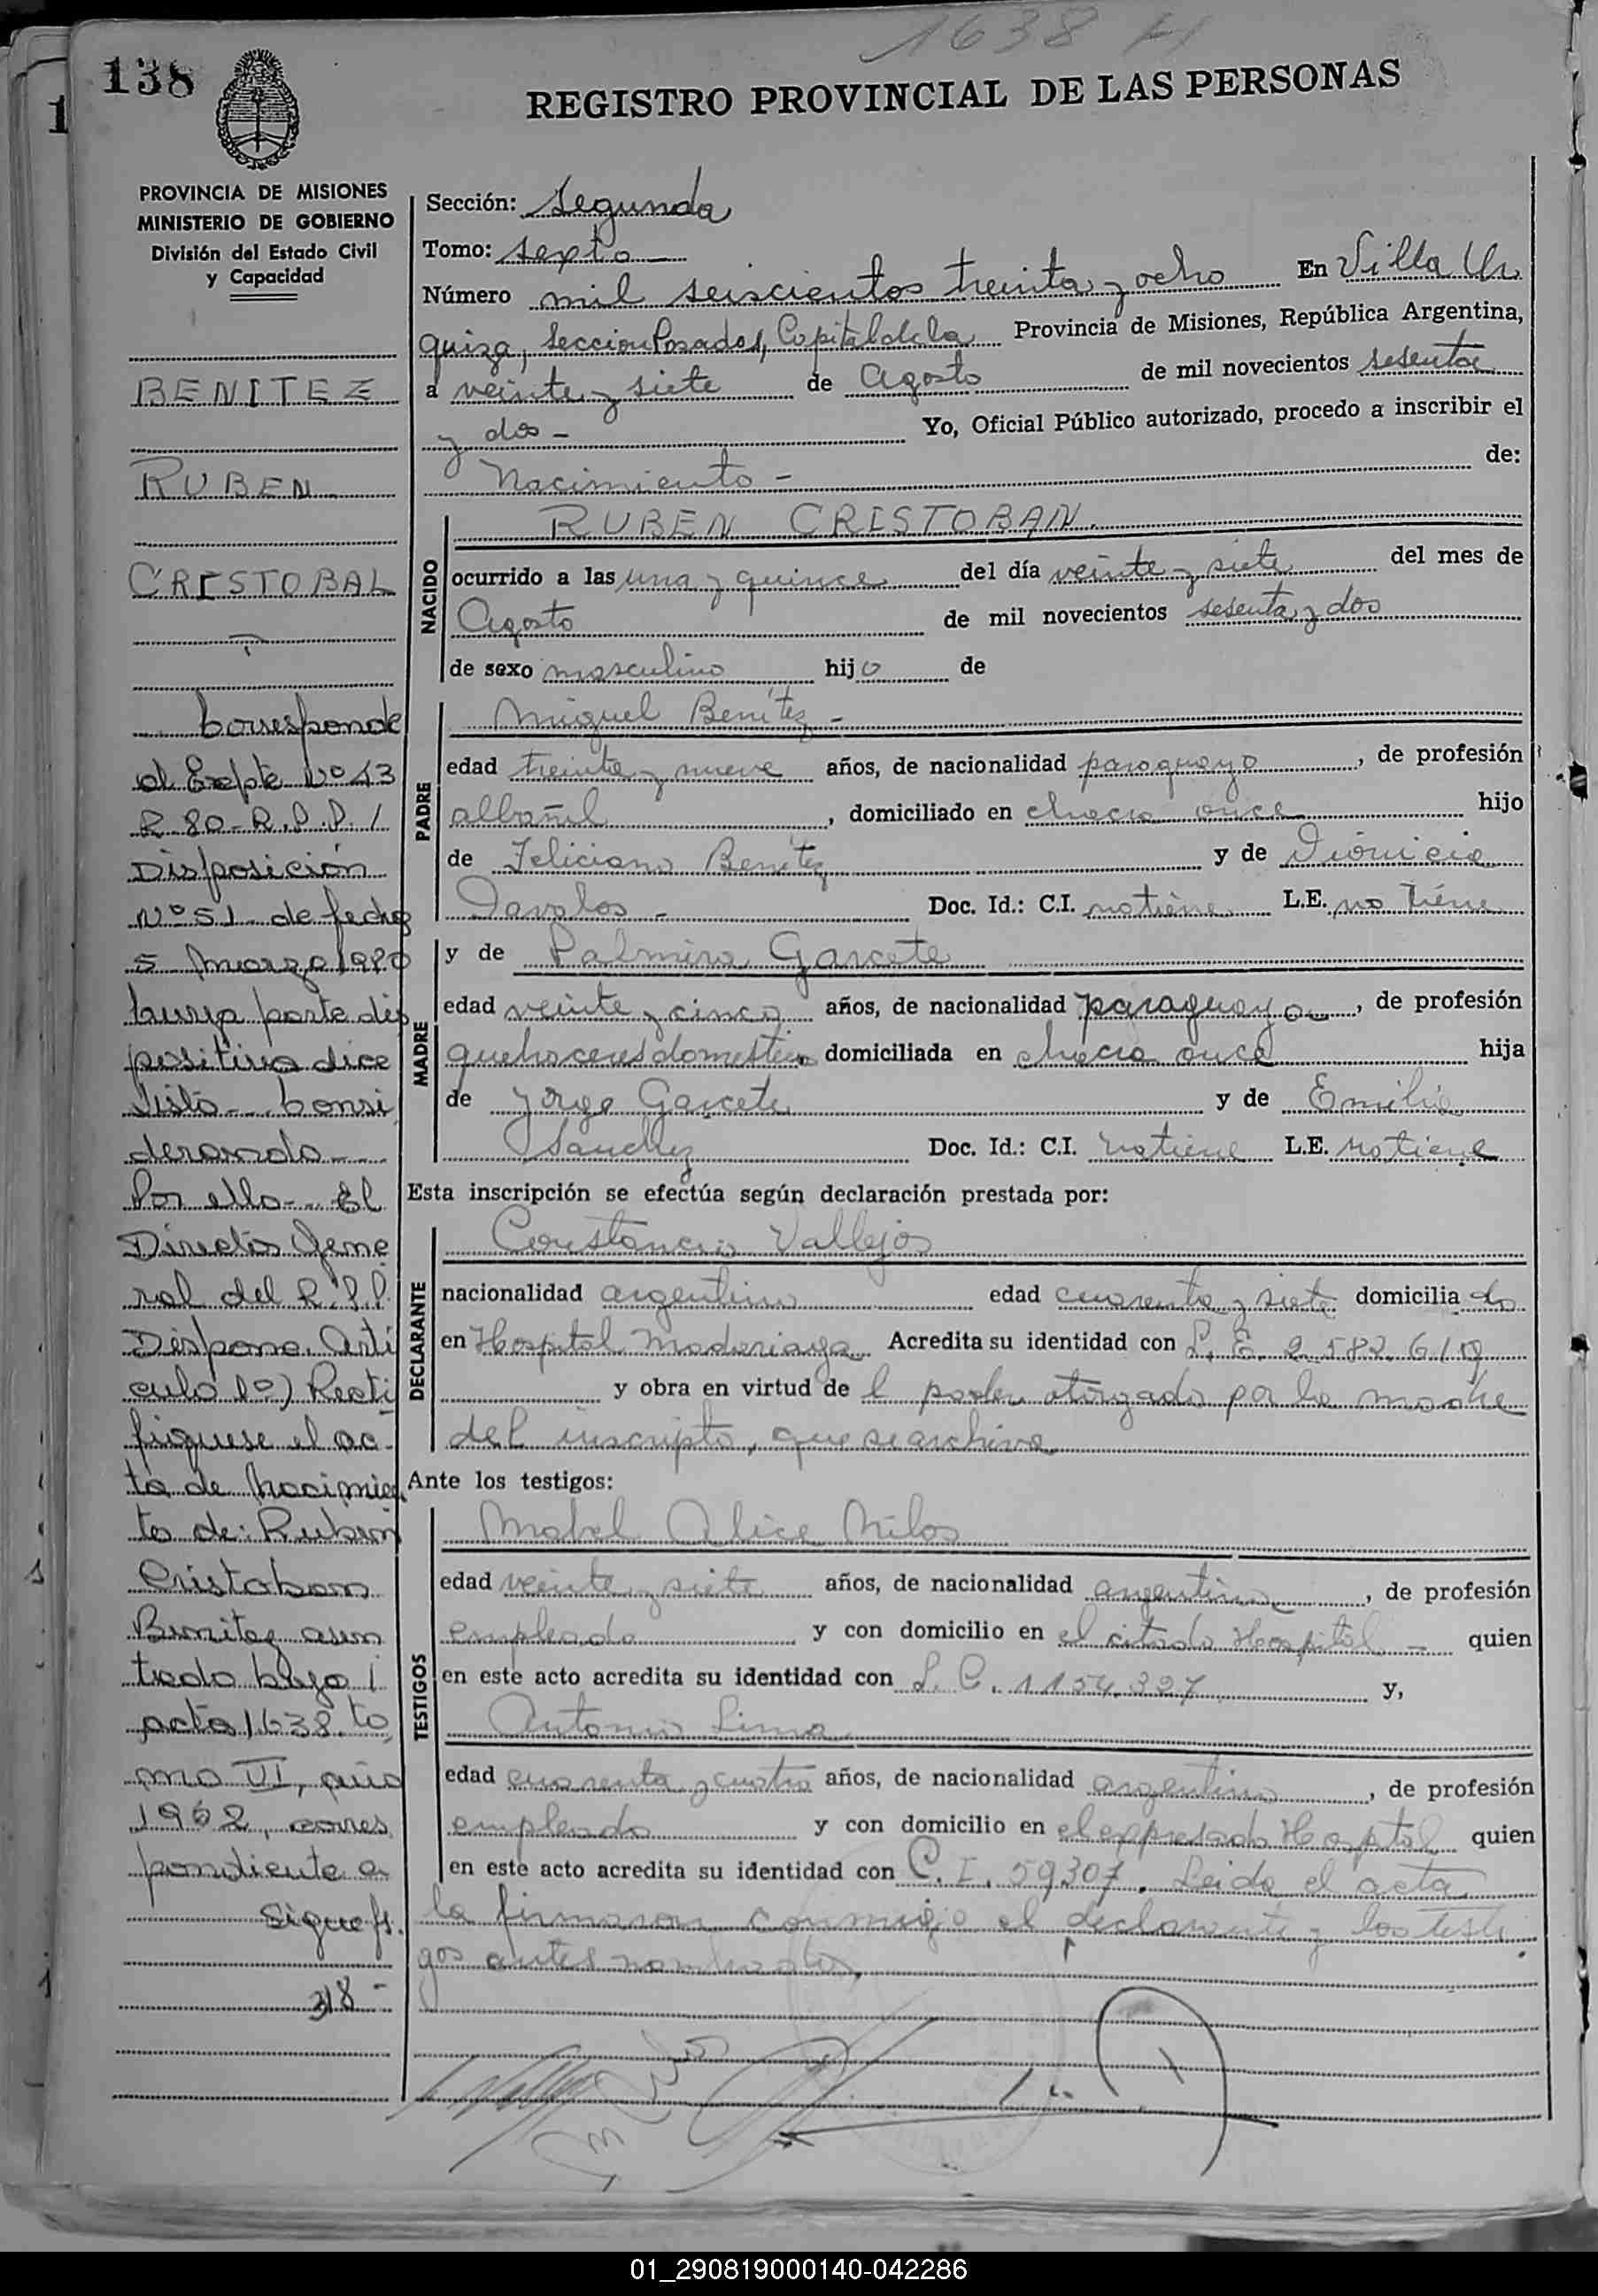 1638 H
138
REGISTRO PROVINCIAL DE LAS PERSONAS
PROVINCIA DE MISIONES
MINISTERIO DE GOBIERNO
División del Estado Civil
y Capacidad
BENITEZ
RUBEN
CRISTOBAL
Corresponde
al Expte Nº 43
R 80-R.P.P./
Disposición
Nº 51 - de fecha
5 Marzo 1980
cuya parte dis
positiva dice
Visto - Consi
derando -
Por ello - El
Director Gene
ral del R.P.P.
Dispone. Artí
culo 1º) Recti
fíquese el ac
ta de Nacimien
to de: Ruben
Cristoban
Benitez asen
trado bajo
acta 1638 to
mo VI, año
1962, corres
pondiente a
Sigue fs.
318 -
Sección: Segunda
Tomo: sexto
Número mil seiscientos treinta y ocho En Villa Ur
quiza, Seccion Posadas, Capital de la Provincia de Misiones, República Argentina,
a veinte y siete de Agosto de mil novecientos sesenta
y dos - Yo, Oficial Público autorizado, procedo a inscribir el
Nacimiento - de:
NACIDO
RUBEN CRISTOBAN.
ocurrido a las una y quince del día veinte y siete del mes de
Agosto de mil novecientos sesenta y dos
de sexo masculino hijo de
PADRE
Miguel Benítez -
edad treinta y nueve años, de nacionalidad paraguayo, de profesión
albañil, domiciliado en chacra once hijo
de Feliciano Benítez y de Dionicia
Davalos - Doc. Id.: C.I. no tiene L.E. no tiene
MADRE
y de Palmira Garcete
edad veinte y cinco años, de nacionalidad paraguaya, de profesión
quehaceres domesticos domiciliada en chacra once hija
de Jorge Garcete y de Emilia
Sanchez Doc. Id.: C.I. no tiene L.E. no tiene
Esta inscripción se efectúa según declaración prestada por:
DECLARANTE
Constancio Vallejos
nacionalidad argentino edad cuarenta y siete domiciliado
en Hospital Madariaga Acredita su identidad con L.E. 2.582.610
y obra en virtud de l poder otorgado por la madre
del inscripto, que se archiva
Ante los testigos:
TESTIGOS
Mabel Alice Milos
edad veinte y siete años, de nacionalidad argentina, de profesión
empleada y con domicilio en el citado Hospital - quien
en este acto acredita su identidad con L.C. 1154.327 y,
Antonio Lima
edad cuarenta y cuatro años, de nacionalidad argentino, de profesión
empleado y con domicilio en el expresado Hospital quien
en este acto acredita su identidad con C.I. 59307. Leida el acta
la firmaron conmigo el declarante y los testi
gos antes nombrados.
01_290819000140-042286